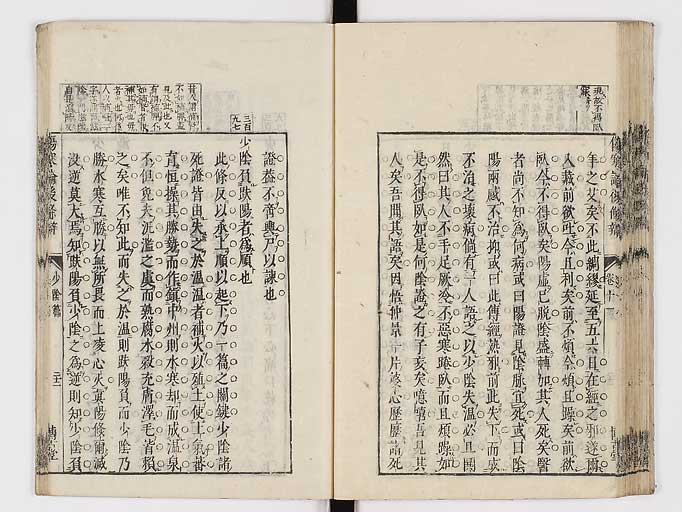 年之艾矣不此綢繆延至五六日在經之邪遂爾
入藏前欲吐今且利矣前不煩今煩且躁矣前欲
臥今不得臥矣陽虛已脫陰盛轉加其人死矣醫
者尚不知為何病或曰陽證見陰脈宜死或曰陰
陽兩感不治抑或曰此傳經熱邪前此失下而成
不治之壞病倘有一人語之以少陰失溫必且閧
然曰其人不手足厥冷不惡寒踡臥而且煩躁如
是不得臥如是何陰證之有子亥矣噫嘻吾見其
人矣吾聞其語矣因悟仲景一片婆心歷歷請死
證葢不啻輿尸以諫也
三百九七
少陰負趺陽者為順也
此條反以承上順以起下乃一篇之關鍵少陰諸
死證皆由失之於溫溫者補火以殖土使土氣蕃
育恆操其勝勢而作鎮中州則水寒却而成溫泉
不但免夫汎濫之虞而熟腐水穀充膚澤毛皆賴
之矣唯不知此而失之於溫則趺陽負而少陰乃
勝水寒互勝以無所畏而上凌心火真陽倏爾滅
沒逆莫大焉知趺陽負少陰之為逆則知少陰負
傷寒論後條辨
少陰篇